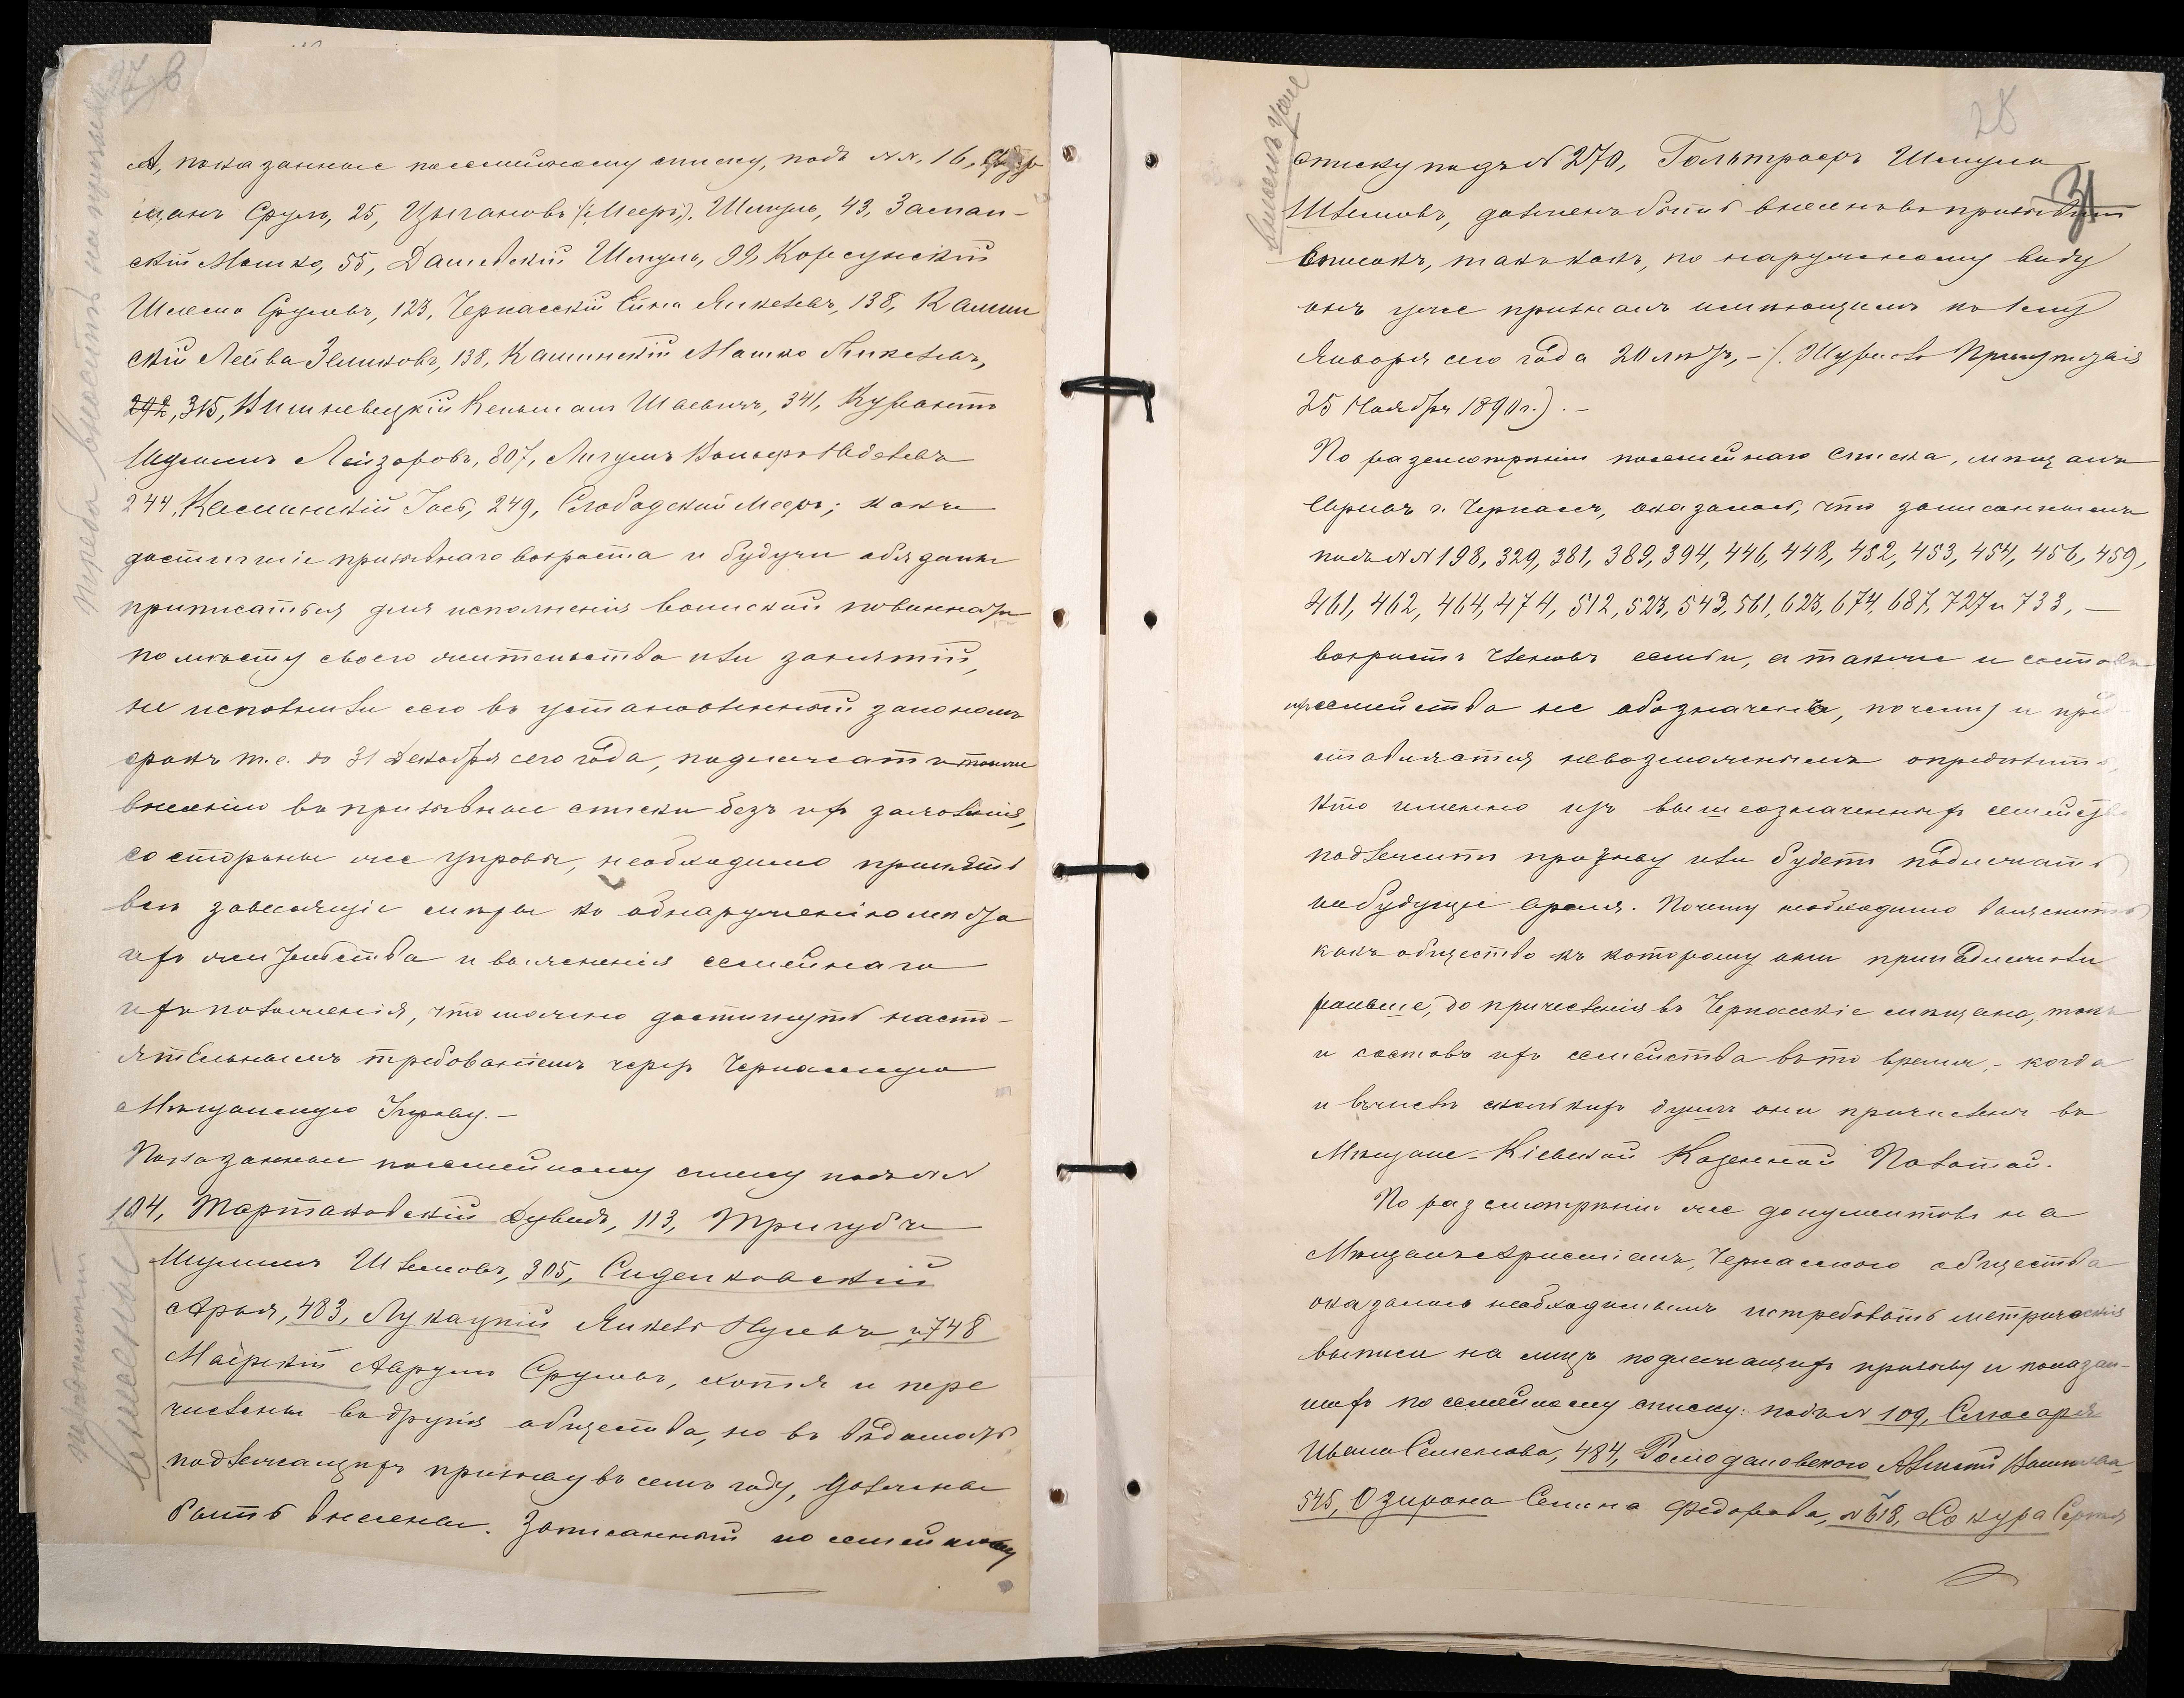 А, показанные посемейному списку, подъ №№, 16,
манъ Сруль, 25, Цыгановъ (Мееръ), Шмуль, 43, Заслав-
скій Мошко, 55, Дашевскій Шмуль, 99, Корсунскій
Шлемо Сруловъ, 123, Черкасскій Янкелевъ, 138, Камин
скій Лейба Зеликовъ, 138, Каминскій Мошко Янкелевъ,
292, 315, Вишневецкій Кельман Шаевичъ, 341,
Шулимъ Лейзоровъ, 807,
244, Каминскій Іось, 249, Слободской Мееръ; какъ
достигшіе призывнаго возраста и будучи обязаны
приписаться для исполненія воинской повинности
по мѣсту своего жительства или занятій,
не исполнили сего въ установленный закономъ
срокъ т.е. до 31 Декабря сего года, подлежатъ также
внесенію въ призывные списки безъ ихъ заявленія,
со стороны же управы, необходимо принять
всѣ зависящіе мѣры къ обнаруженію мѣста
ихъ жительства и выясненія семейнаго
ихъ положенія, что можно достигнуть насто-
ятельнымъ требованіемъ черезъ Черкасскую
Мѣщанскую Управу.—
Показанные посемейному списку подъ №№
104, Тартаковскій Дувидъ, 113, Тригубъ
Шулимъ Шлемовъ, 305, Сиденковскій
Арья, 483, Лукацкій Янкель и 748
Маёрскій Аврумъ Сруловъ, хотя и пере
числены въ другія общества, но въ вѣдомость
подлежащихъ призыву въ семъ году, должны
быть внесены. Записанный по семейному
треба вносить на призывъ
внесены
28
31
внесенъ уже
списку подъ № 270, Гольтраеръ Шмуль
Шлемовъ, долженъ быть внесенъ въ призывный
списокъ, такъ какъ, по наружному виду
онъ уже признанъ имѣющимъ къ 1му
Января сего года 20 лѣтъ, — (Журналъ Присутствія
25 Ноября 1890 г.). —
По разсмотрѣніи посемейнаго списка, мѣщанъ
г. Черкасъ, оказалось, что записаннымъ
подъ №№ 198, 329, 381, 389, 394, 446, 448, 452, 453, 454, 456, 459,
461, 462, 464, 474, 512, 523, 543, 561, 623, 674, 687, 727 и 733, —
возрастъ членовъ семьи, а также и составъ
семейства не обозначенъ, почему и пред
ставляется невозможнымъ опредѣлить,
кто именно изъ вышеозначенныхъ семействъ
подлежитъ призыву или будетъ подлежать
на будущее время. Почему необходимо выяснить
какъ общество къ которому они принадлежали
раньше, до причисленія въ Черкасскіе мѣщане, такъ
и составъ ихъ семейства въ то время, — когда
и въ числѣ сколькихъ душъ они причислены въ
Мѣщане Кіевской Казенной Палатой.
По разсмотрѣніи же документовъ на
Мѣщанъ христіанъ, Черкасскаго общества
оказалось необходимымъ истребовать метрическія
выписи на лицъ подлежащихъ призыву и показан-
ныхъ по семейному списку: подъ № 109, Слюсаря
Ивана Семенова, 484, Ромодановскаго Алексѣй
545, Озирона Семена Федорова, № 618, Сокура Сергѣя